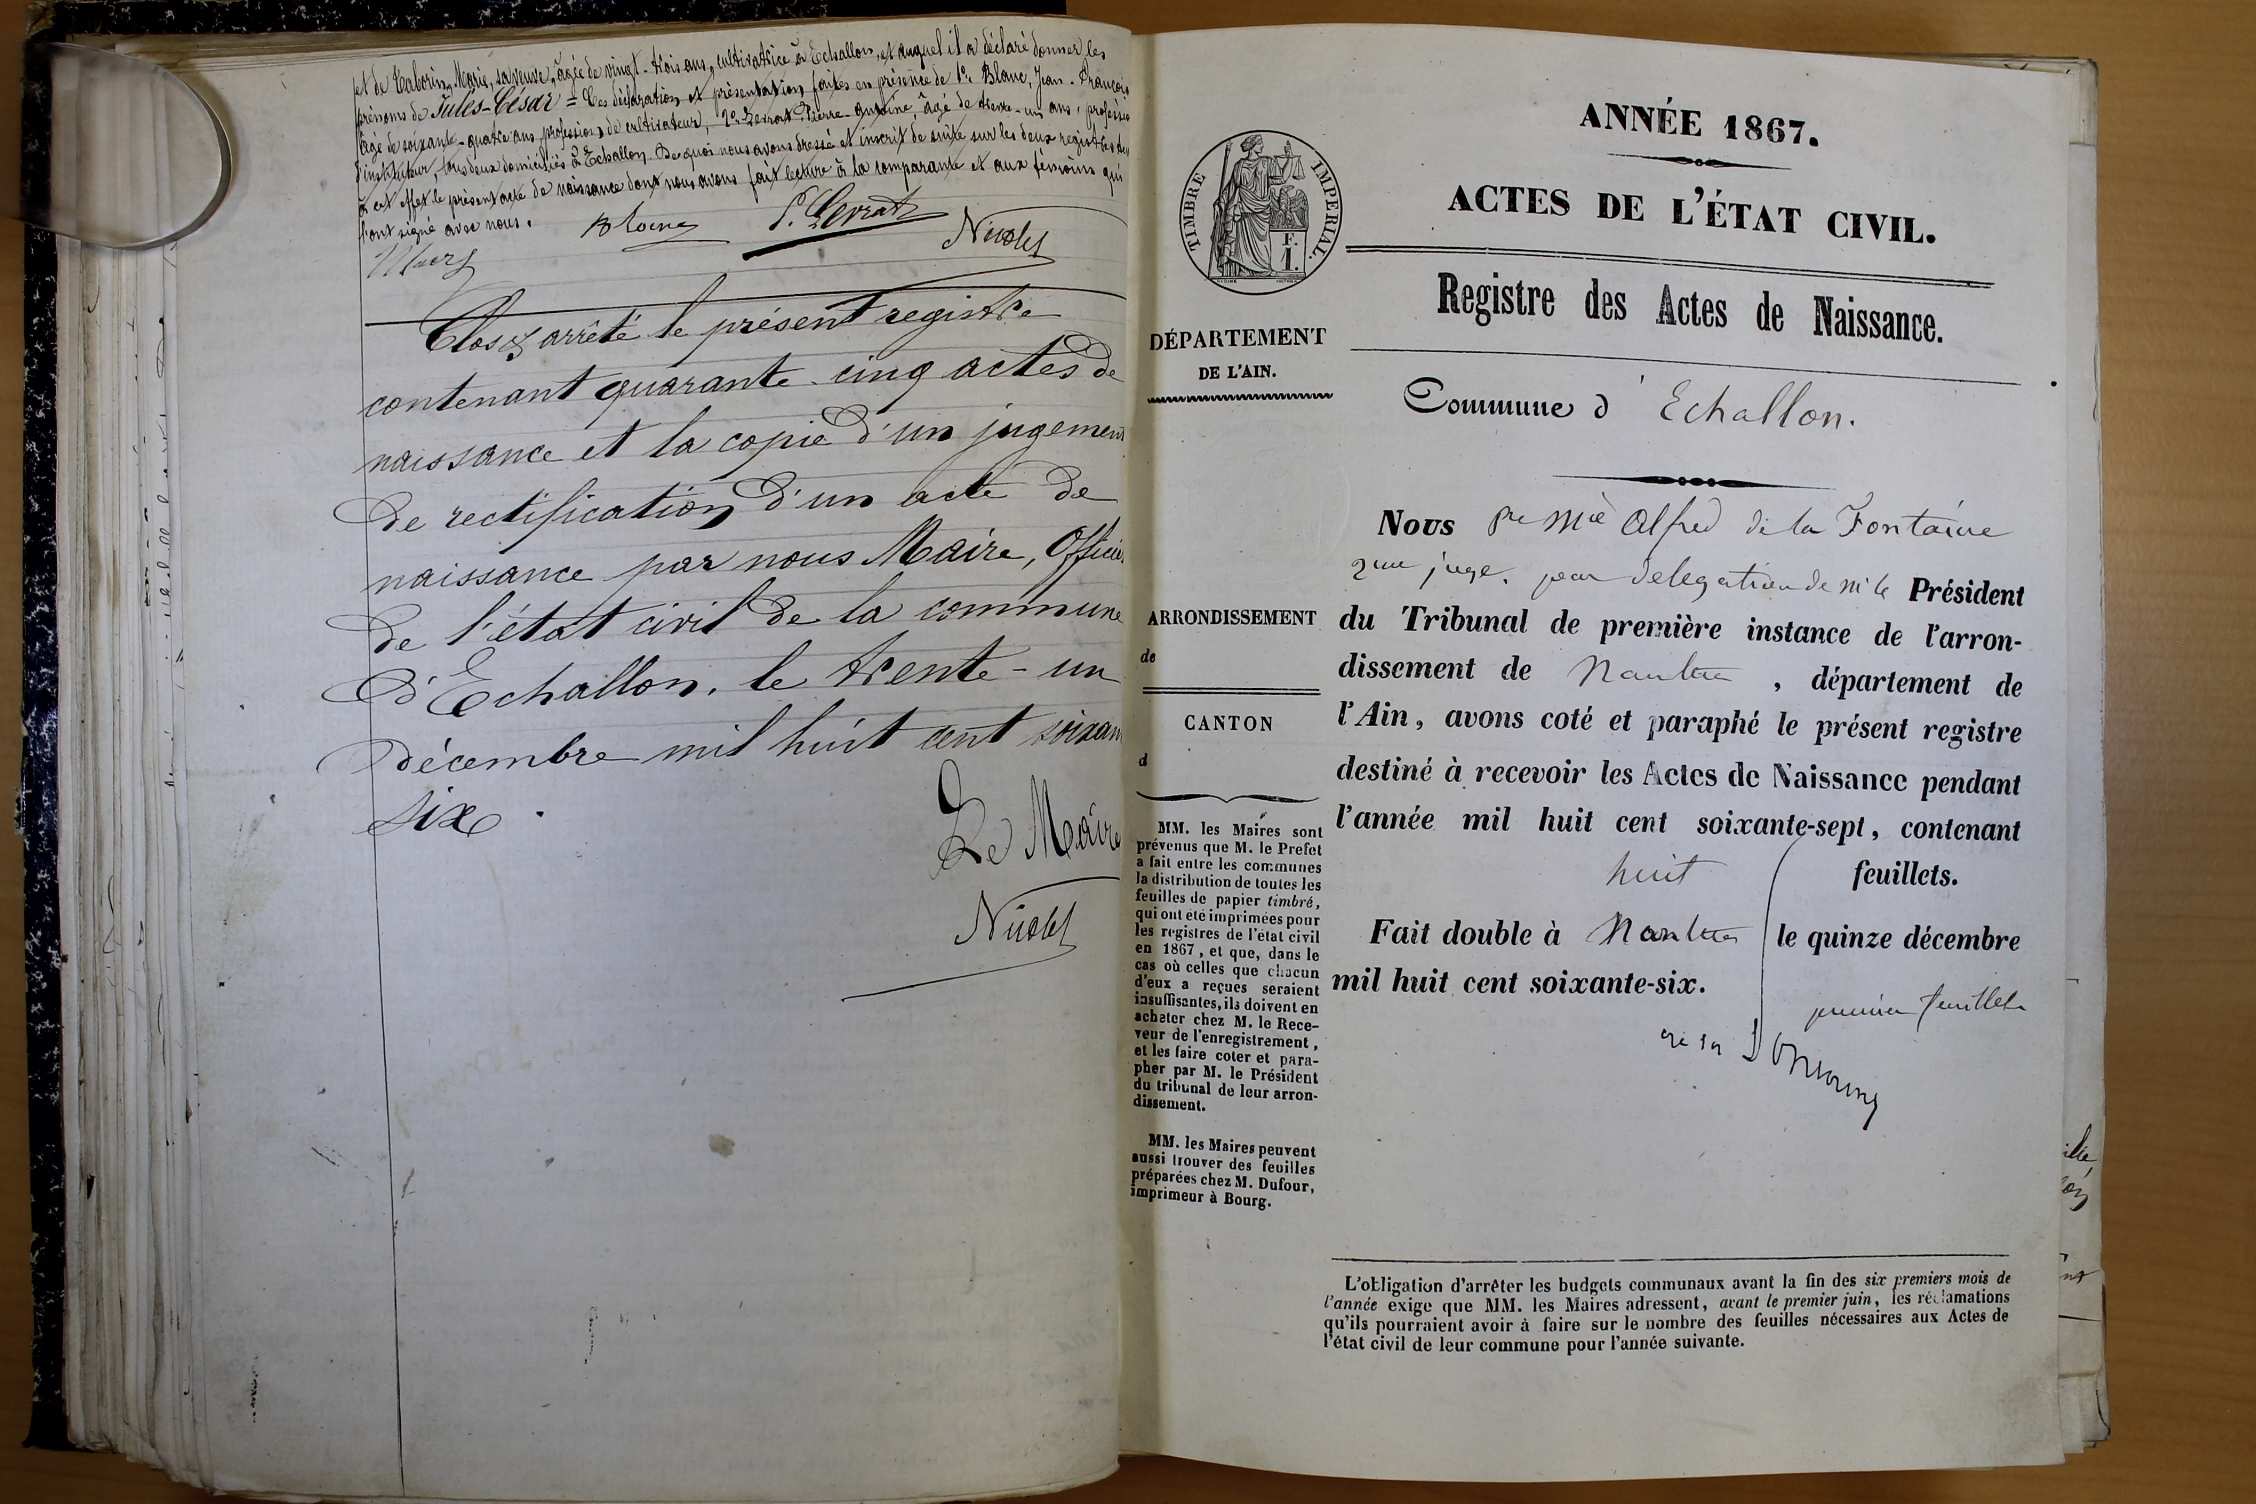 et de Taborin, Marie, sa veuve, âgée de vingt-trois ans, cultivatrice à Echallon, et auquel il a déclaré donner les
prénoms de Jules-César = Ces déclaration et présentation faites en présence de 1° Blanc, Jean-François
âgé de soixante-quatre ans, profession de cultivateur, 2° Levrat Pierre-Antoine, âgé de trente-un ans, profession
d'instituteur, tous deux domiciliés à Echallon. De quoi nous avons dressé et inscrit de suite sur les deux registres
à cet effet le présent acte de naissance dont nous avons fait lecture à la comparante et aux témoins qui
l'ont signé avec nous.
Blanc P. Levrat Nicolet
Clos & arrêté le présent registre
contenant quarante-cinq actes de
naissance et la copie d'un jugement
de rectification d'un acte de
naissance par nous Maire, Officier
de l'état civil de la commune
d'Echallon, le trente-un
décembre mil huit cent soixan
six.
Le Maire
Nicolet
ANNÉE 1867.
ACTES DE L'ÉTAT CIVIL.
TIMBRE IMPERIAL.
F.
1.
Registre des Actes de Naissance.
DÉPARTEMENT
DE L'AIN.
Commune d'Echallon.
Nous Alfred de la Fontaine
juge. par délégation de Mr le Président
ARRONDISSEMENT
de
du Tribunal de première instance de l'arron-
dissement de Nantua, département de
CANTON
d
l'Ain, avons coté et paraphé le présent registre
destiné à recevoir les Actes de Naissance pendant
l'année mil huit cent soixante-sept, contenant
huit feuillets.
Fait double à Nantua le quinze décembre
mil huit cent soixante-six.
premier feuillet
MM. les Maires sont
prévenus que M. le Prefet
a fait entre les communes
la distribution de toutes les
feuilles de papier timbré,
qui ont été imprimées pour
les registres de l'état civil
en 1867, et que, dans le
cas où celles que chacun
d'eux a reçues seraient
insuffisantes, ils doivent en
acheter chez M. le Rece-
veur de l'enregistrement,
et les faire coter et para-
pher par M. le Président
du tribunal de leur arron-
dissement.
MM. les Maires peuvent
aussi trouver des feuilles
préparées chez M. Dufour,
imprimeur à Bourg.
L'obligation d'arrêter les budgets communaux avant la fin des six premiers mois de
l'année exige que MM. les Maires adressent, avant le premier juin, les réclamations
qu'ils pourraient avoir à faire sur le nombre des feuilles nécessaires aux Actes de
l'état civil de leur commune pour l'année suivante.